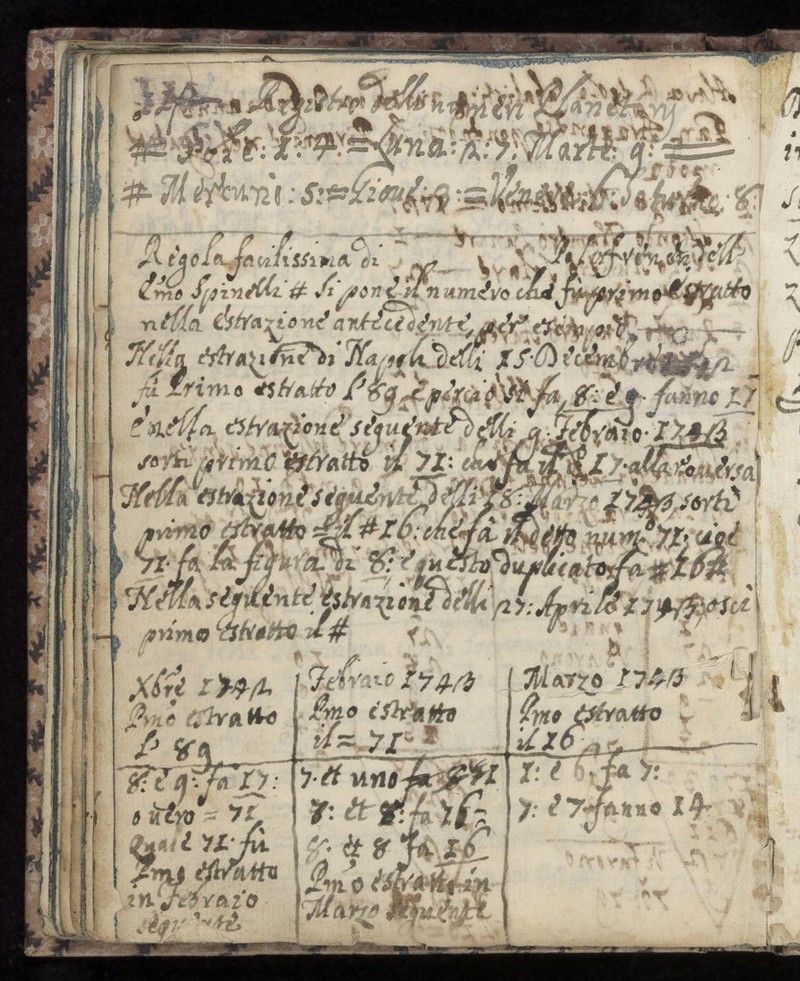 Registro delli numeri Planetarij
# Sole: 1: 4: = Luna: 2: 7: Marte: 9: =
# Mercurio: 5: = Giove: 3: = Venere: 6: Saturno: 8:
Regola facilissima di dell
Emo Spinelli # Si pone il numero che fù primo estratto
nella estrazione antecedente, per esempio,
Nella estrazione di Napoli delli 15 Decembre 1742
fù Primo estratto l' 89 e perciò si fa, 8: e 9 fanno 17
e nella estrazione seguente delli 9: Febraio 1743
sortì primo estratto il 71: che fa il 17 alla roversa
Nella estrazione seguente delli 18: Marzo 1743, sortì
primo estratto = il # 16: che fà il detto num.º 71: cioè
71 fa la figura di 8: e questo duplicato fa # 16 #
Nella seguente estrazione delli 27: Aprile 1743: oscì
primo estratto il #
Xbre 1742
Pmo estratto
l' 89
8: e 9: fa 17:
overo = 71
quale 71 fù
Pmo estratto
in Febraio
seguente
Febraio 1743
Pmo estratto
il = 71
7. et uno fa 8
8: et 8: fa 16 =
8. et 8 fa 16
Pmo estratto in
Marzo seguente
Marzo 1743
Pmo estratto
il 16
1: e 6: fa 7:
7: e 7 fanno 14